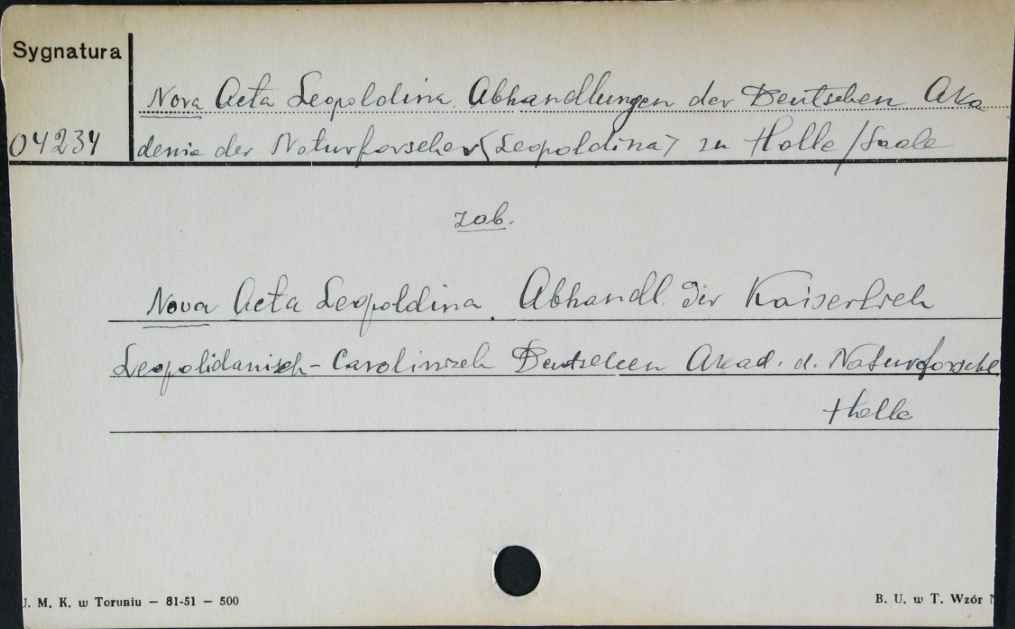 Sygnatura
Nova Acta Leopoldina. Abhandlungen der Deutschen Aka
04234
demie der Naturforscher (Leopoldina) zu Halle/Saale
zob.
Nova Acta Leopoldina. Abhandl. der Kaiserlich
Leopolidanisch-Carolinisch Deutschen Akad. d. Naturforsche
Halle
U. M. K. w Toruniu — 81-51 — 500
B. U. w T. Wzór